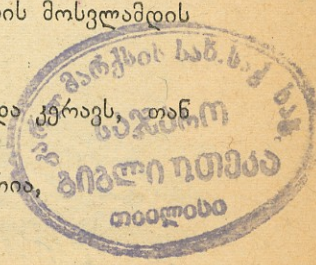 ის მოსვლამდის
და კერავს, თან
რია,
მარქსის სახ. საქ. სახ.
საჯარო
ბიბლიოთეკა
თბილისი